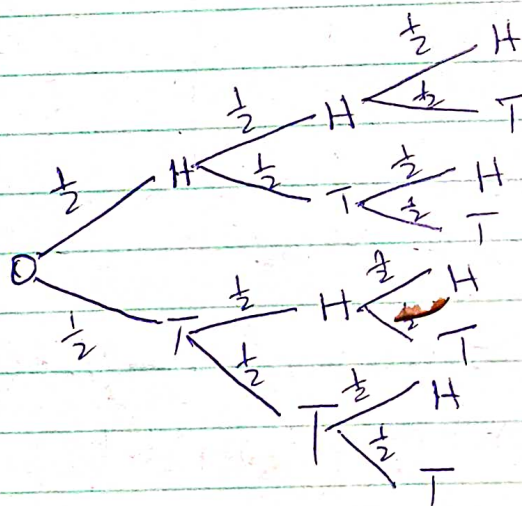 1/2 H
1/2 H 1/2 T
1/2 H 1/2 T 1/2 H
1/2 T
O
1/2 T 1/2 H 1/2 H
1/2 T
1/2 T 1/2 H
1/2 T